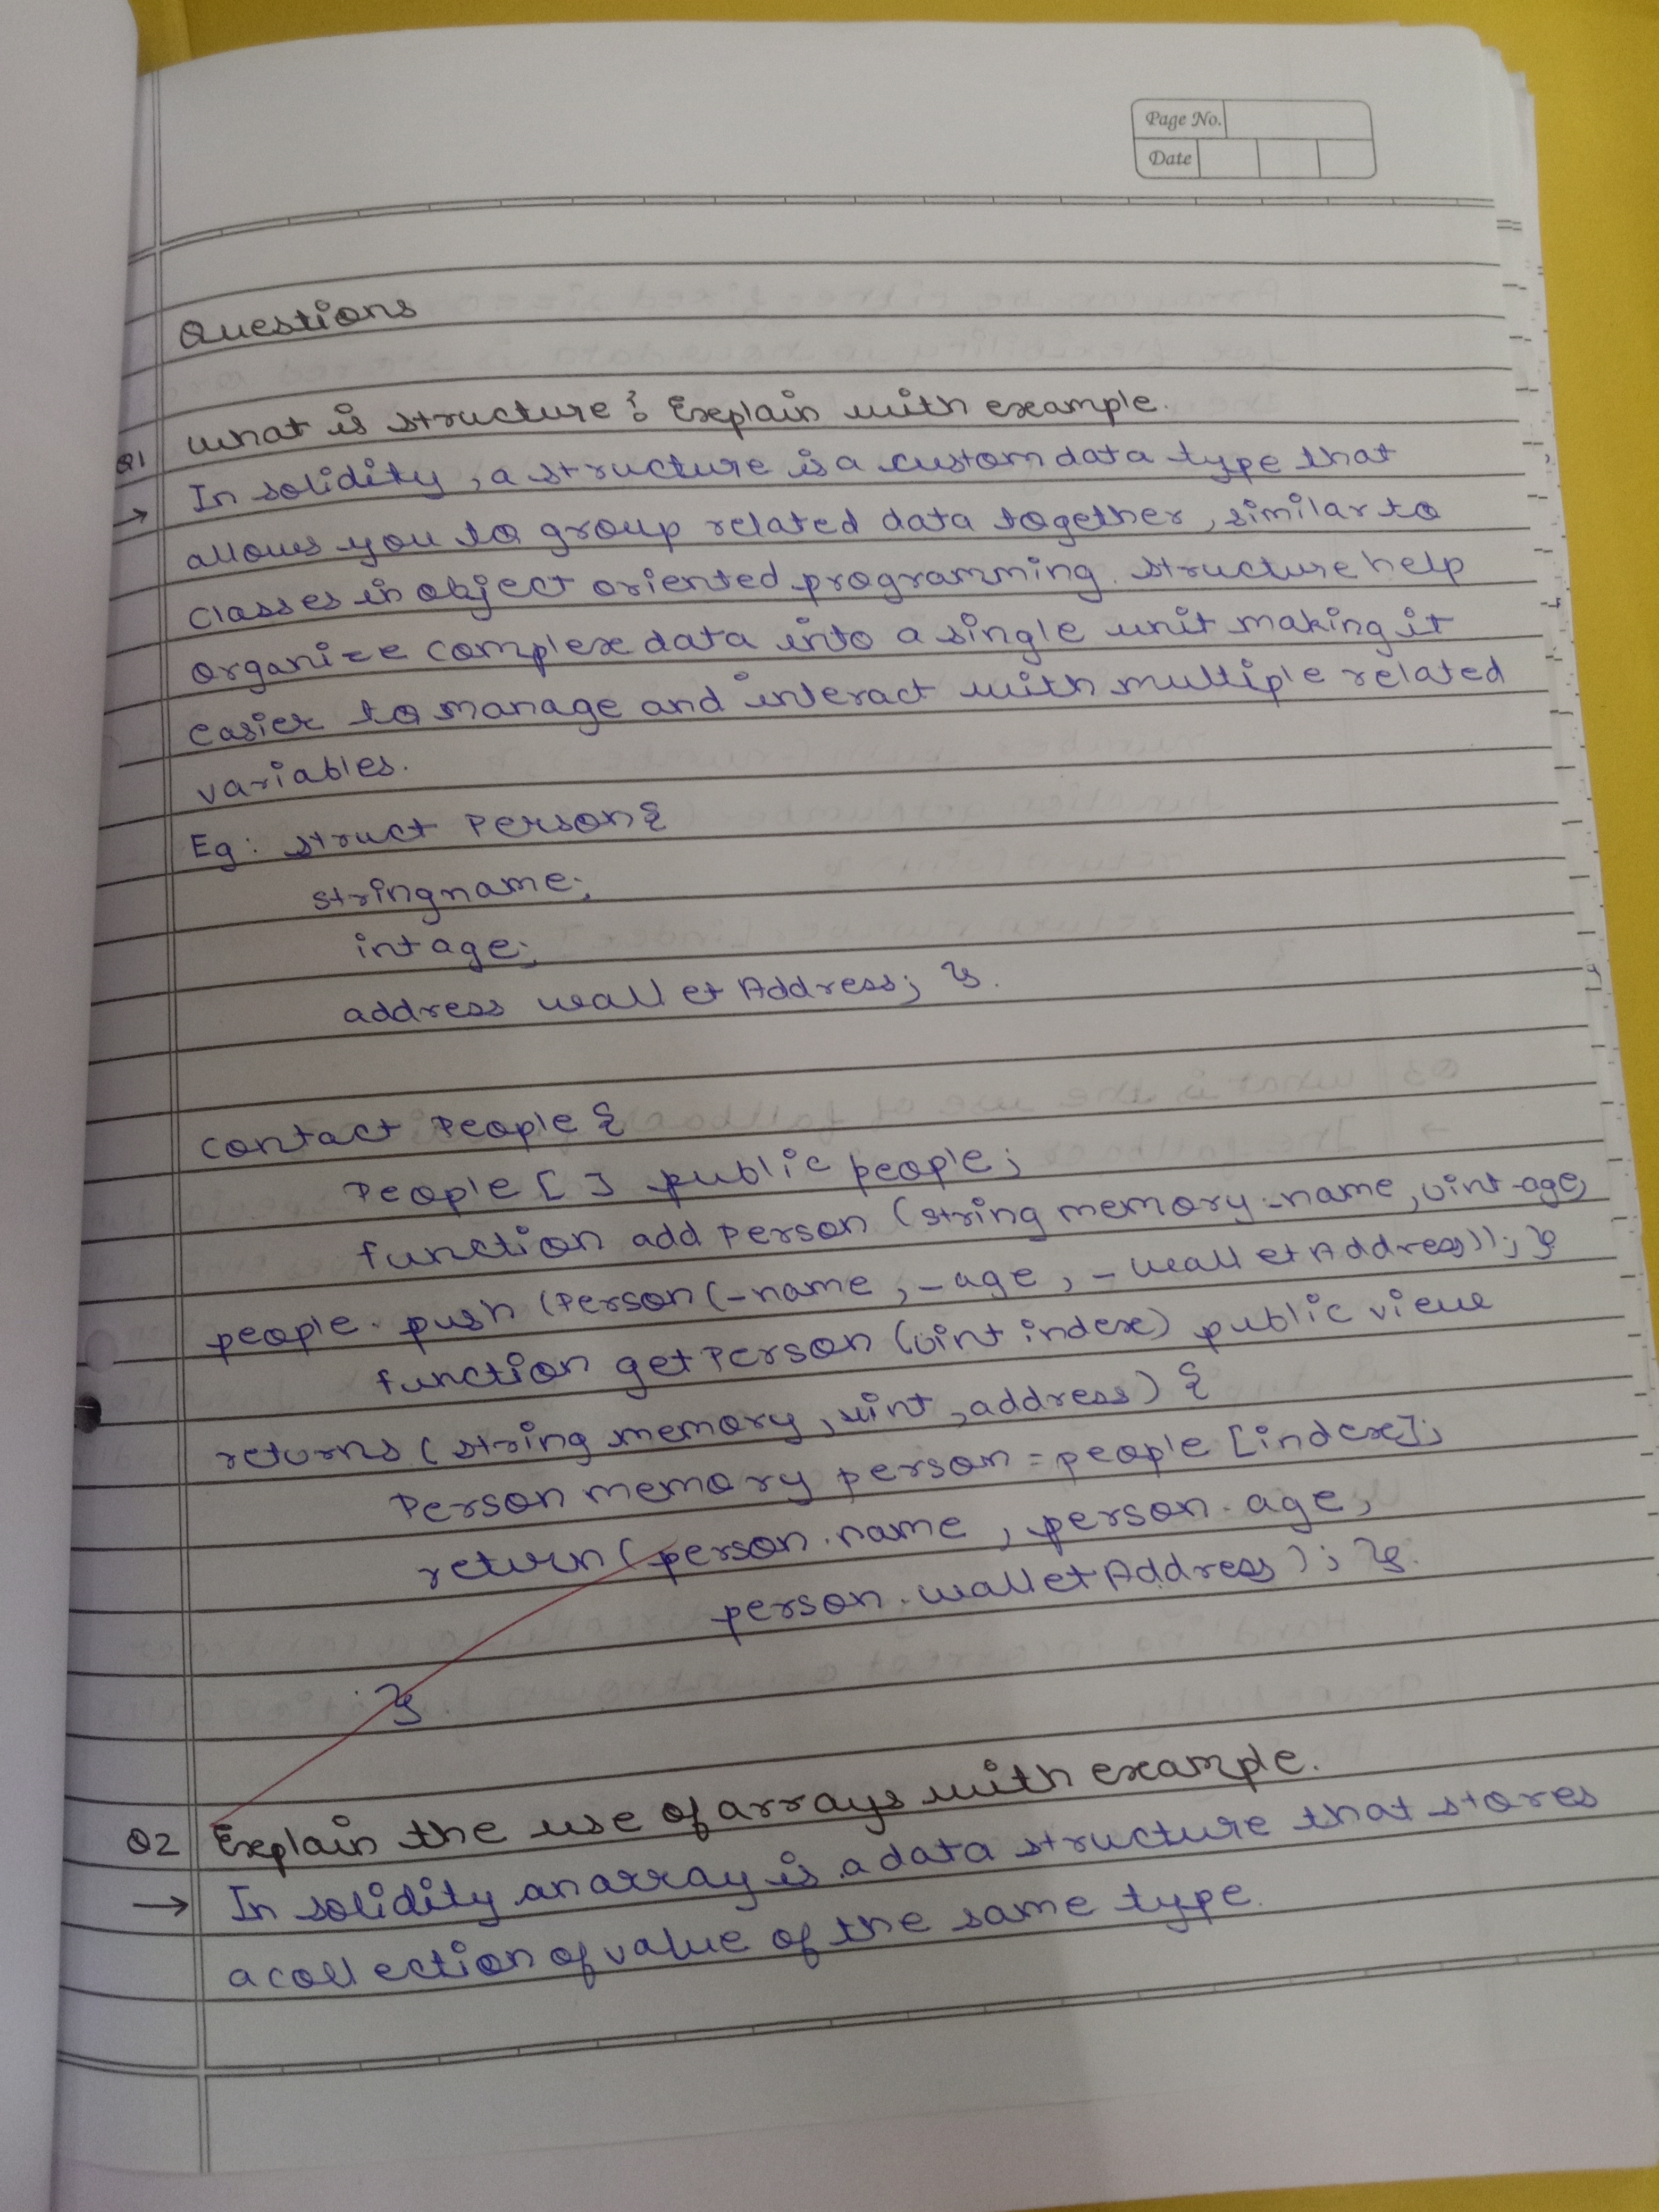 Page No.
Date
Questions
Q1 what is structure? Explain with example.
→ In solidity, a structure is a custom data type that
allows you to group related data together, similar to
classes in object oriented programming. structure help
organize complex data into a single unit making it
easier to manage and interact with multiple related
variables.
Eg: struct Person{
string name;
int age;
address wallet Address; }.
contact People {
People [ ] public people;
function add Person (string memory -name, uint -age,
people. push (Person (-name, -age, -wallet Address)); }
function getPerson (uint index) public view
returns (string memory, uint, address) {
Person memory person = people [index];
return (person.name, person.age,
person.wallet Address); }.
}
Q2 Explain the use of arrays with example.
→ In solidity an array is a data structure that stores
a collection of value of the same type.